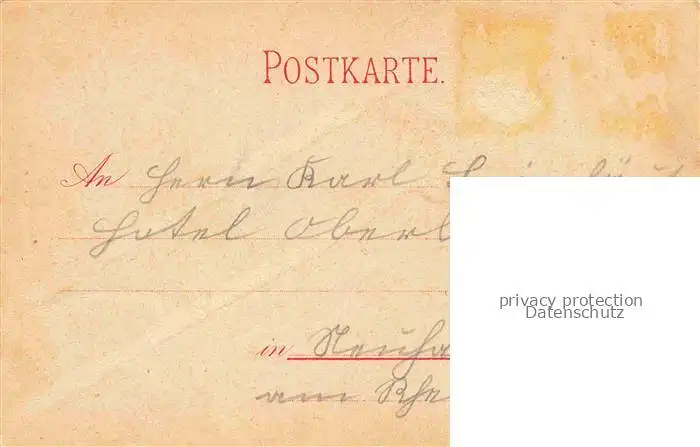 POSTKARTE.
An Herrn Karl
Hotel Oberl
privacy protection
Datenschutz
in Neuha
am Rhe